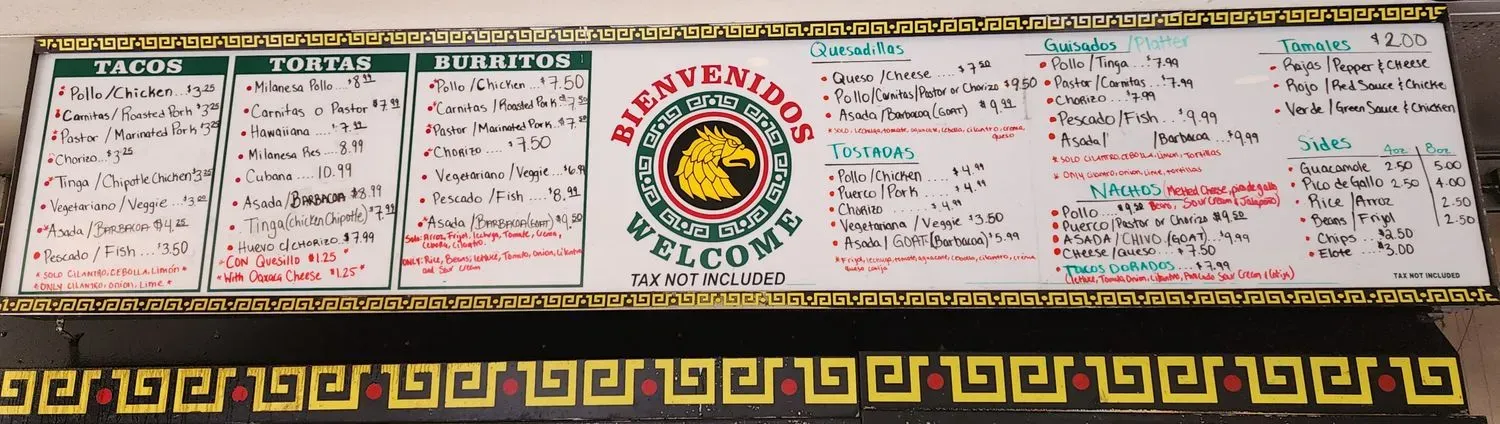 TACOS
• Pollo/Chicken...$3.25
• Carnitas/Roasted Pork $3.25
• Pastor/Marinated Pork $3.25
• Chorizo...$3.25
• Tinga/Chipotle Chicken $3.25
• Vegetariano/Veggie...$3.00
• Asada/BARBACOA $4.25
• Pescado/Fish....$3.50
* SOLO CILANTRO, CEBOLLA, Limón *
* ONLY CILANTRO, Onion, Lime *
TORTAS
• Milanesa Pollo..$8.99
• Carnitas o Pastor $7.99
• Hawaiiana ....7.99
• Milanesa Res....8.99
• Cubana....10.99
• Asada/BARBACOA $8.99
Tinga (Chicken Chipotle) $7.99
• Huevo c/chorizo.$7.99
*CON Quesillo $1.25*
*With Oaxaca Cheese $1.25*
BURRITOS
• Pollo/Chicken..$7.50
• Carnitas/Roasted Pork $7.50
• Pastor/Marinated Pork..$7.50
• Chorizo....$7.50
• Vegetariano/Veggie...$6.99
• Pescado/Fish....$8.99
*Asada/BARBACOA (GOAT) $9.50
Solo: Arroz, Frijol, lechuga, Tomate, Crema, cebolla, cilantro.
ONLY: Rice, Beans, lettuce, Tomato, Onion, Cilantro and Sour Cream
BIENVENIDOS
WELCOME
TAX NOT INCLUDED
Quesadillas
• Queso/Cheese....$7.50
• Pollo/Carnitas/Pastor or Chorizo $9.50
• Asada/Barbacoa (GOAT) $9.99
* SOLO, lechuga, tomate, aguacate, cebolla, cilantro, crema, queso
TOSTADAS
• Pollo/Chicken ....$4.99
• Puerco/Pork.....$4.99
• Chorizo........$4.99
• Vegetariana/Veggie $3.50
• Asada/GOAT (Barbacoa) $5.99
* Frijol, lechuga, tomate, aguacate, cebolla, cilantro, crema
Guisados/Platter
• Pollo/Tinga...$7.99
• Pastor/Carnitas..$7.99
• Chorizo...$7.99
• Pescado/Fish...$9.99
• Asada/ /Barbacoa...$9.99
* SOLO CILANTRO, CEBOLLA, Limon, TORTILLAS
* ONLY cilantro, onion, lime, tortillas
NACHOS (Melted Cheese, pico de gallo Beans, Sour Cream & Jalapeño)
• Pollo...$9.50
• Puerco/Pastor or Chorizo $9.50
• ASADA/CHIVO (GOAT)...$9.99
• Cheese/Queso...$7.50
• TACOS DORADOS..$7.99
(lettuce, Tomato, Onion, Cilantro, Sour Cream & Cotija)
Tamales $2.00
• Rajas/Pepper & cheese
• Rojo/Red Sauce & Chicke
• Verde/Green Sauce & Chicken
Sides 4oz 8oz
• Guacamole 2.50 5.00
• Pico de Gallo 2.50 4.00
• Rice/Arroz 2.50
• Beans/Frijol 2.50
• Chips...$2.50
• Elote...$3.00
TAX NOT INCLUDED